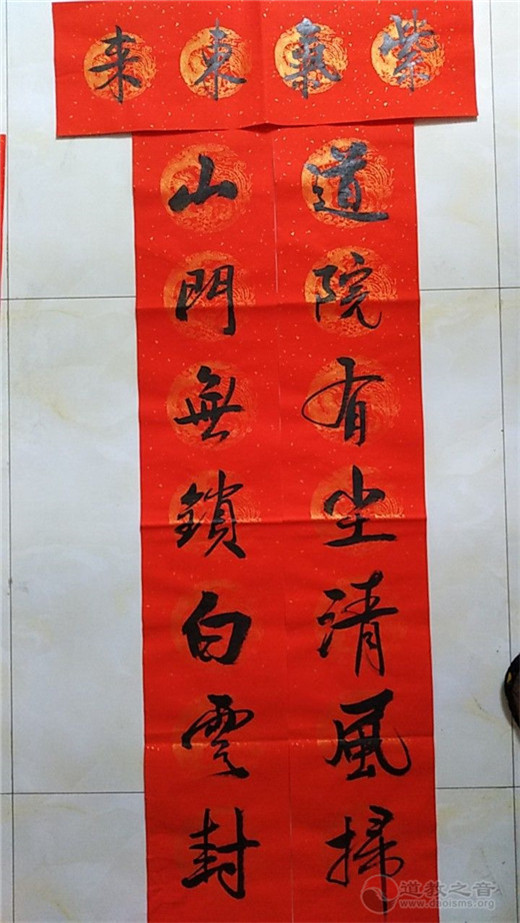 紫氣東来
道院有尘清風掃
山門無鎖白雲封
道教之音
www.daoisms.org